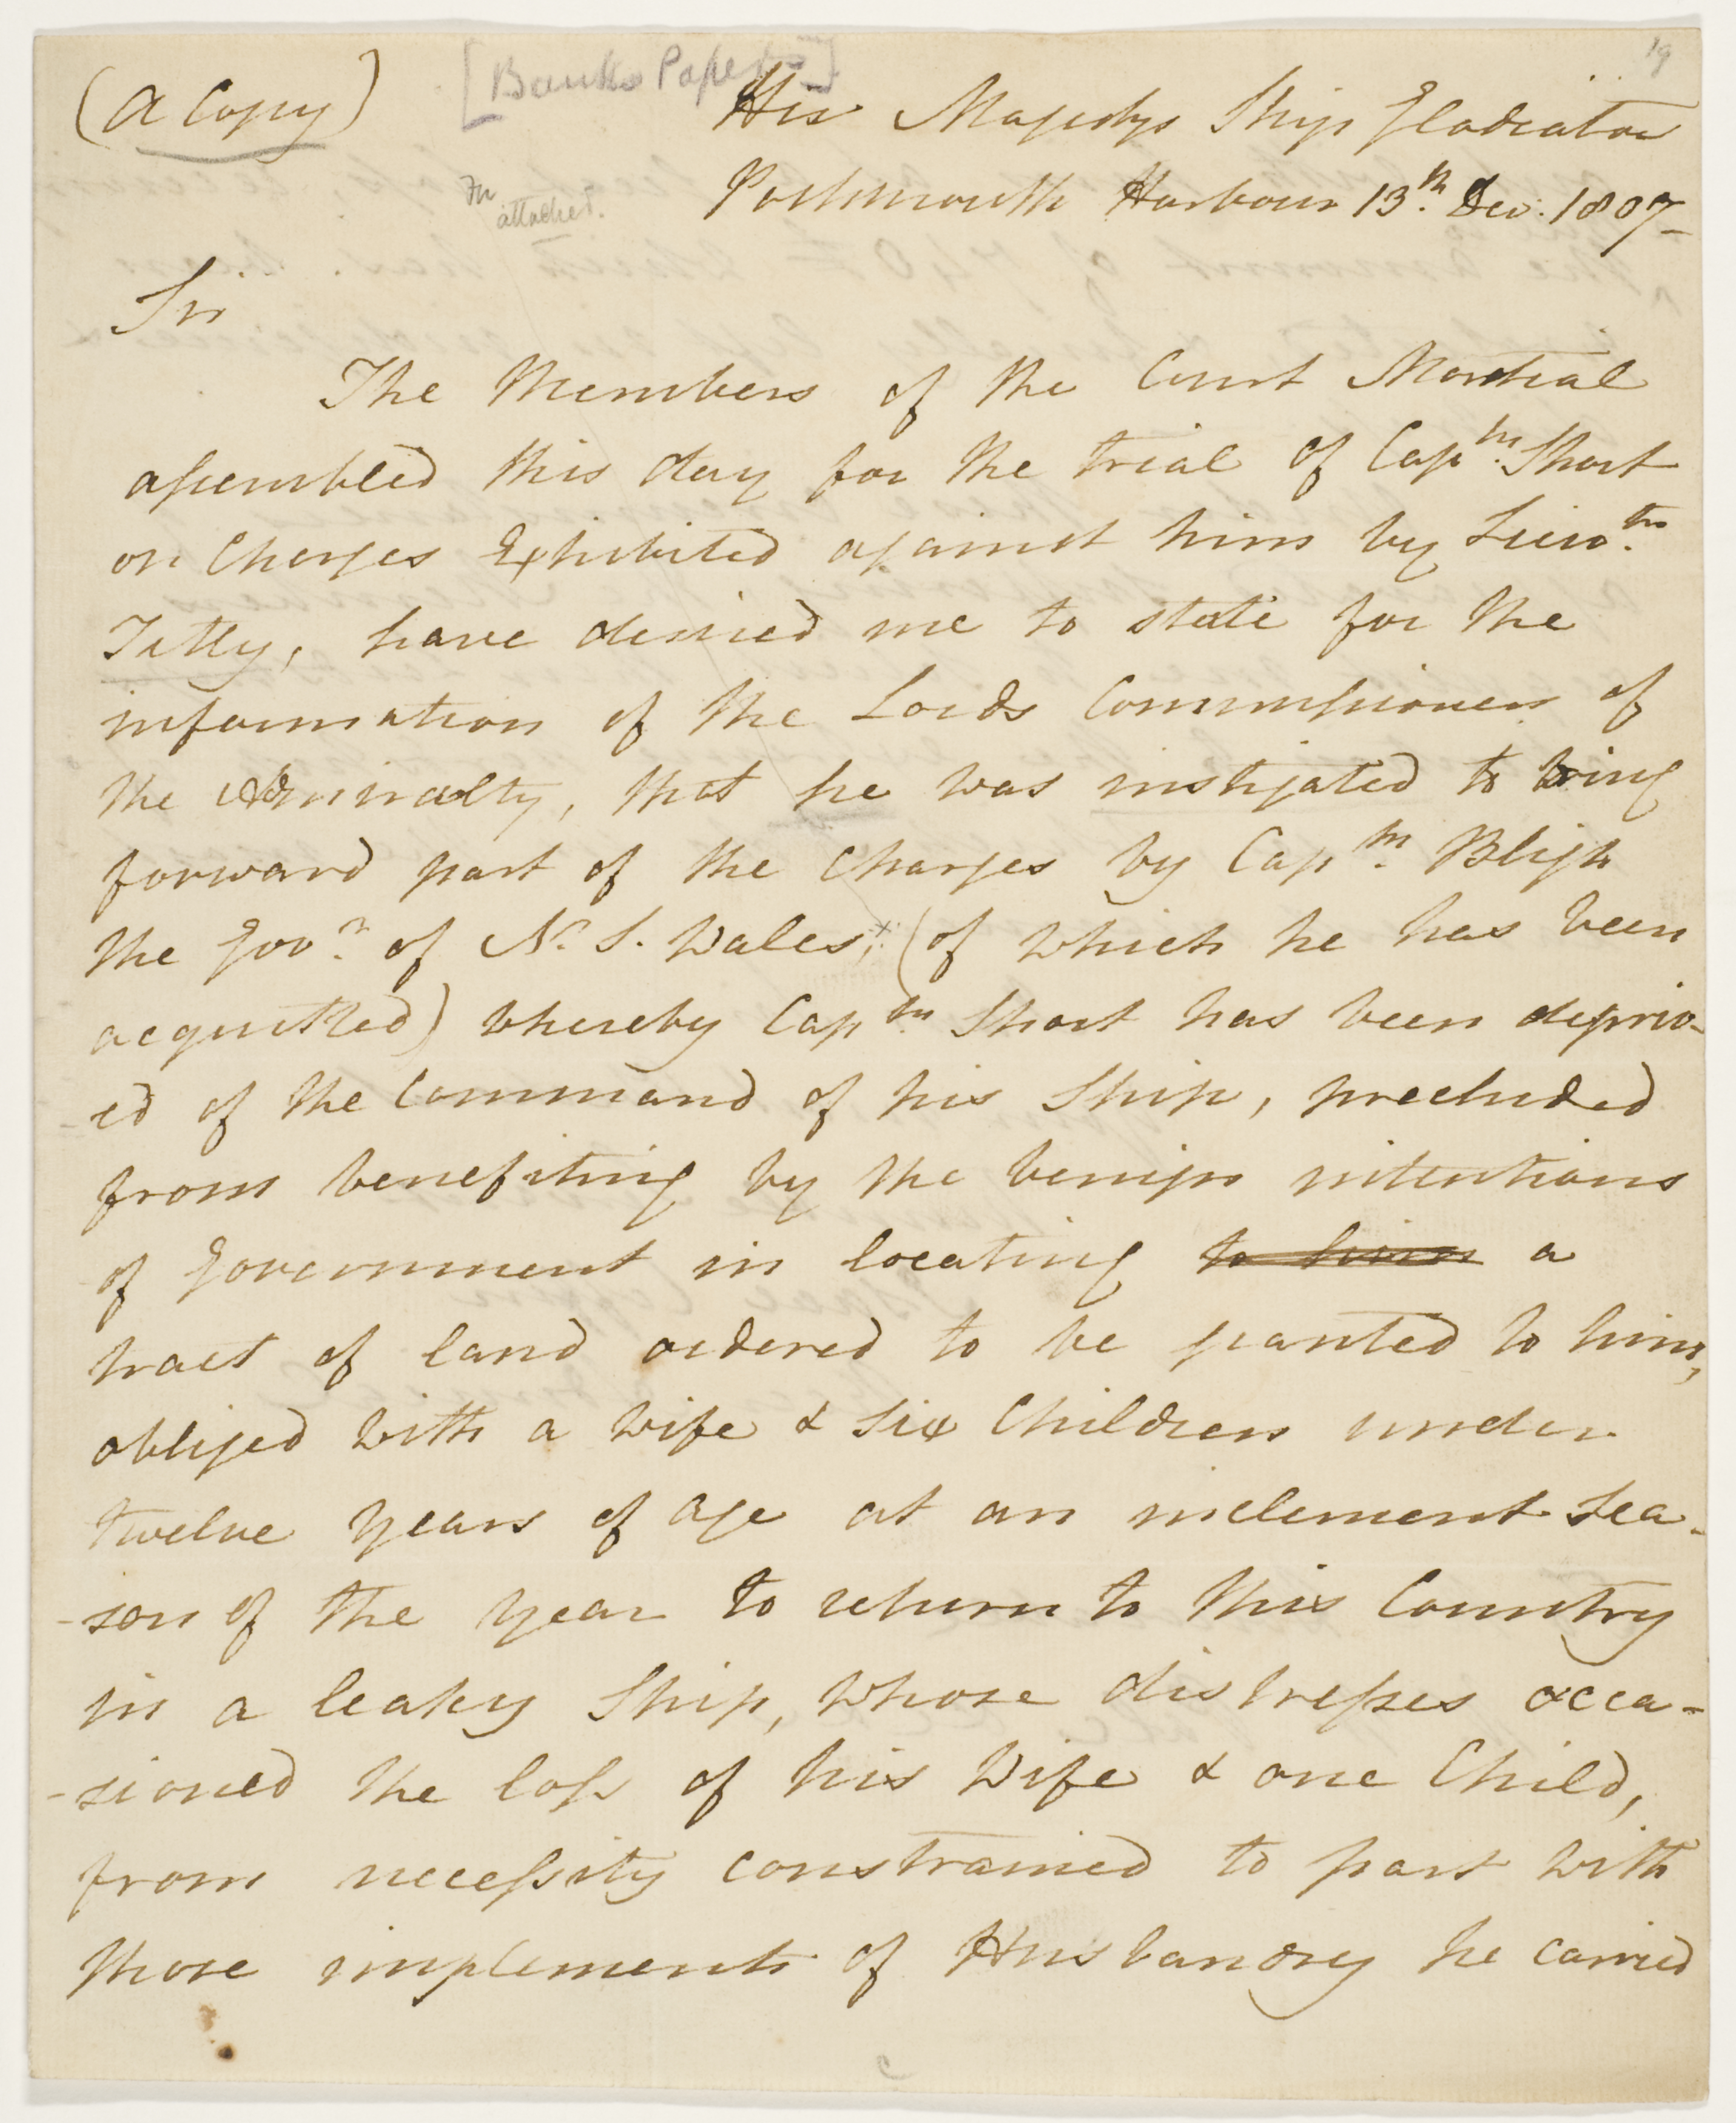 19
(a Copy)
[Banks Papers]
His Majestys Ship Gladiator
Portsmouth Harbour 13th. Dec. 1807
attached.
Sir
The Members of the Court Martial
assembled this day for the trial of Captn. Short
on Charges Exhibited against him by Lieutn.
Tetly, have desired me to state for the
information of the Lords Commissioners of
the Admiralty, that he was instigated to bring
forward part of the Charges by Captn. Bligh
the Govr. of N. S. Wales, x (of which he has been
acquitted) whereby Captn. Short has been depriv-
ed of the Command of his Ship, precluded
from benefiting by the benign intentions
of Government in locating to him a
tract of land ordered to be granted to him,
obliged with a Wife & Six Children under
twelve years of age at an inclement Sea-
-son of the year to return to this Country
in a leaky Ship, whose distresses occa-
-sioned the loss of his Wife & one Child,
from necessity constrained to part with
those implements of Husbandry he carried